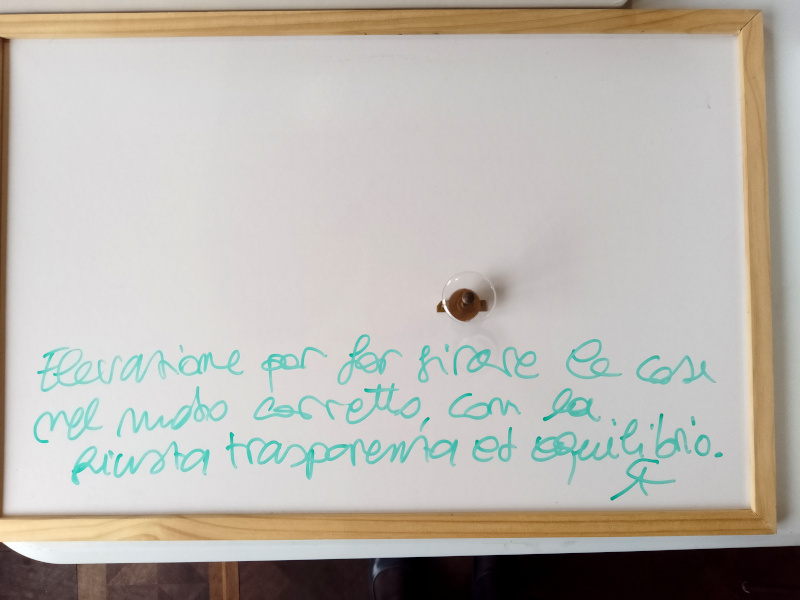 Elevazione per far girare le cose
nel modo corretto, con la
giusta trasparenza ed equilibrio.